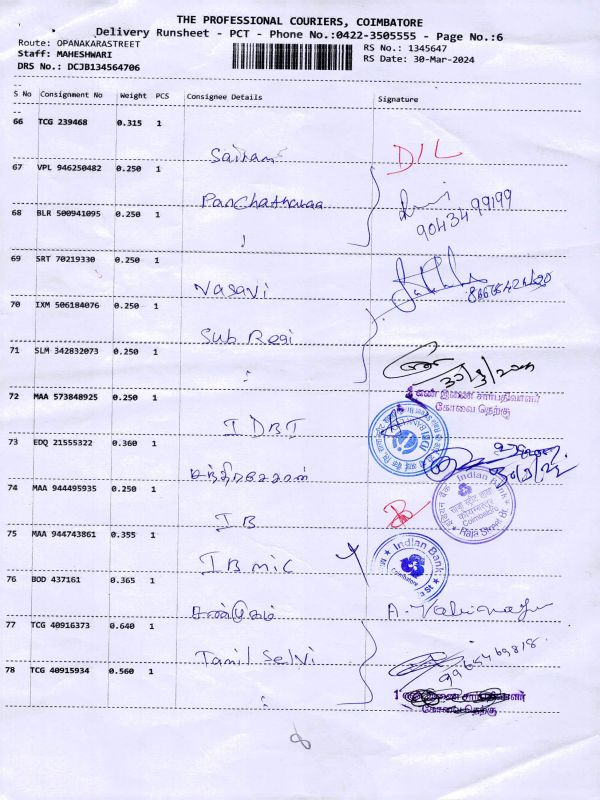 THE PROFESSIONAL COURIERS, COIMBATORE
Delivery Runsheet - PCT - Phone No.:0422-3505555 - Page No.:6
Route: OPANAKARASTREET RS No.: 1345647
Staff: MAHESHWARI RS Date: 30-Mar-2024
DRS No.: DCJB134564706
S No Consignment No Weight PCS Consignee Details Signature
66 TCG 239468 0.315 1
Sairam DIL
67 VPL 946250482 0.250 1
Panchatharaa
9043499199
68 BLR 500941095 0.250 1
69 SRT 70219330 0.250 1
Vasavi
70 IXM 506184076 0.250 1
Sub Regi
71 SLM 342832073 0.250 1
72 MAA 573848925 0.250 1
எண் இணை சார்பதிவாளர்
கோவை தெற்கு
IDBI
73 EDQ 21555322 0.360 1
சந்திரசேகரன்
74 MAA 944495935 0.250 1
IB
Indian Bank
Coimbatore
Raja Street Br.
75 MAA 944743861 0.355 1
IB MIC
Indian Bank
Coimbatore
76 BOD 437161 0.365 1
சண்முகம்
77 TCG 40916373 0.640 1
Tamil Selvi
9965469818
78 TCG 40915934 0.560 1
இணை சார்பதிவாளர்
கோவை தெற்கு
8